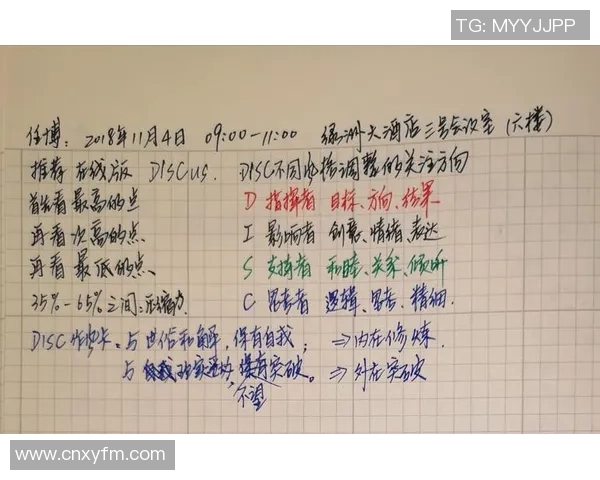 TG: MYYJJPP
任博: 2018年11月4日 09:00-11:00 绿洲大酒店三号会议室 (六楼)
推荐在线版 DISCUS. DISC不同风格调整的关注方向
首先看最高的点 D 指挥者 目标、方向、结果
再看次高的点、 I 影响者 创意、情绪、表达
再看最低的点、 S 支持者 和睦、关系、倾听
35%-65%之间:压缩 C 思考者 逻辑、思考、精细.
DISC 与世俗和解,保有自我; ⇒内在修炼.
与 突破。⇒外在突破
不望
www.cnxyfm.com